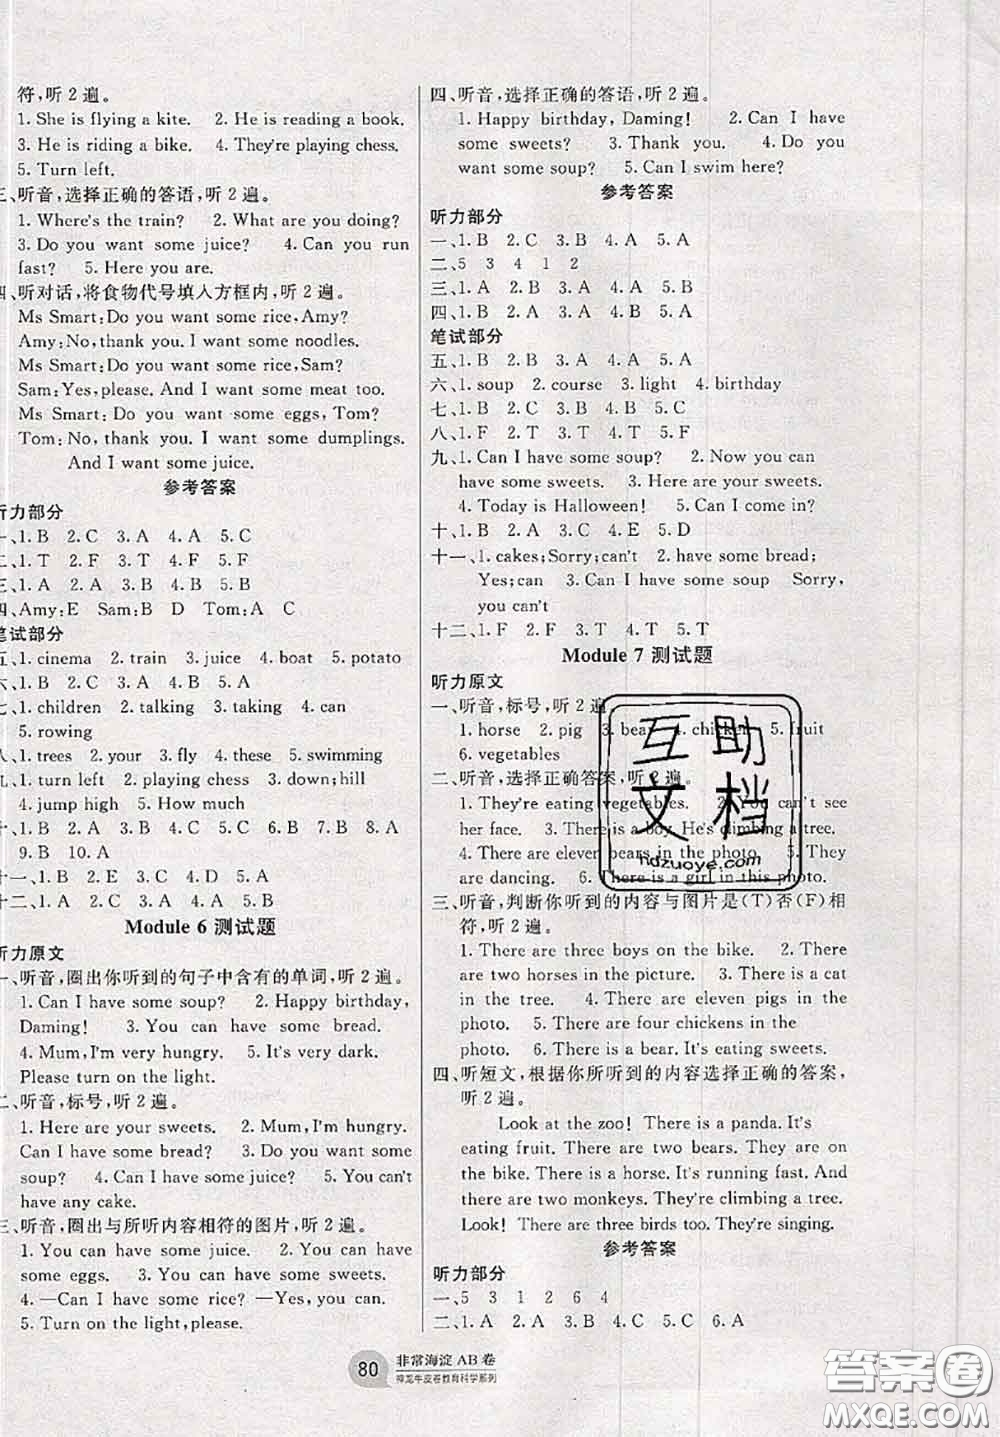 符,听2遍。
1. She is flying a kite. 2. He is reading a book.
3. He is riding a bike. 4. They're playing chess.
5. Turn left.
三、听音,选择正确的答语,听2遍。
1. Where's the train? 2. What are you doing?
3. Do you want some juice? 4. Can you run
fast? 5. Here you are.
四、听对话,将食物代号填入方框内,听2遍。
Ms Smart: Do you want some rice, Amy?
Amy: No, thank you. I want some noodles.
Ms Smart: Do you want some rice, Sam?
Sam: Yes, please. And I want some meat too.
Ms Smart: Do you want some eggs, Tom?
Tom: No, thank you. I want some dumplings.
And I want some juice.
参考答案
听力部分
一、1. B 2. C 3. A 4. A 5. C
二、1. T 2. F 3. T 4. T 5. F
三、1. A 2. A 3. B 4. A 5. B
四、Amy: E Sam: B D Tom: A C
笔试部分
五、1. cinema 2. train 3. juice 4. boat 5. potato
六、1. C 2. B 3. A 4. A 5. B
七、1. children 2. talking 3. taking 4. can
5. rowing
八、1. trees 2. your 3. fly 4. these 5. swimming
九、1. turn left 2. playing chess 3. down; hill
4. jump high 5. How much
十、1. B 2. A 3. B 4. C 5. C 6. B 7. B 8. A
9. B 10. A
十一、1. B 2. B 3. A 4. C 5. A
十二、1. B 2. A 3. A 4. A 5. B
Module 6 测试题
听力原文
一、听音,圈出你听到的句子中含有的单词,听2遍。
1. Can I have some soup? 2. Happy birthday,
Daming! 3. You can have some bread.
4. Mum, I'm very hungry. 5. It's very dark.
Please turn on the light.
二、听音,标号,听2遍。
1. Here are your sweets. 2. Mum, I'm hungry.
Can I have some bread? 3. Do you want some
soup? 4. Can I have sweets? 5. You can't
have any cake.
三、听音,圈出与所听内容相符的图片,听2遍。
1. You can have some juice. 2. You can have
some eggs. 3. You can have some sweets.
4. —Can I have some rice? —Yes, you can.
5. Turn on the light, please.
四、听音,选择正确的答语,听2遍。
1. Happy birthday, Daming! 2. Can I have
some sweets? 3. Thank you. 4. Do you
want some soup? 5. Can I swim here?
参考答案
听力部分
一、1. B 2. C 3. B 4. A 5. A
二、5 3 4 1 2
三、1. A 2. A 3. B 4. A 5. B
四、1. B 2. A 3. B 4. A 5. A
笔试部分
五、1. B 2. B 3. A 4. A 5. A
六、1. soup 2. course 3. light 4. birthday
七、1. B 2. A 3. B 4. B 5. C
八、1. F 2. T 3. T 4. T 5. F
九、1. Can I have some soup? 2. Now you can
have some sweets. 3. Here are your sweets.
4. Today is Halloween! 5. Can I come in?
十、1. B 2. A 3. C 4. E 5. D
十一、1. cakes; Sorry; can't 2. have some bread;
Yes; can 3. Can I have some soup Sorry,
you can't
十二、1. F 2. F 3. T 4. T 5. T
Module 7 测试题
听力原文
一、听音,标号,听2遍。
1. horse 2. pig 3. bear 4. chicken 5. fruit
6. vegetables
二、听音,选择正确答案,听2遍。
1. They're eating vegetables. 2. You can't see
her face. 3. There is a boy. He's climbing a tree.
4. There are eleven bears in the photo. 5. They
are dancing. 6. There is a girl in this photo.
三、听音,判断你听到的内容与图片是(T)否(F)相
符,听2遍。
1. There are three boys on the bike. 2. There
are two horses in the picture. 3. There is a cat
in the tree. 4. There are eleven pigs in the
photo. 5. There are four chickens in the
photo. 6. There is a bear. It's eating sweets.
四、听短文,根据你所听到的内容选择正确的答案,
听2遍。
Look at the zoo! There is a panda. It's
eating fruit. There are two bears. They are
on the bike. There is a horse. It's running fast. And
there are two monkeys. They're climbing a tree.
Look! There are three birds too. They're singing.
参考答案
听力部分
一、5 3 1 2 6 4
二、1. A 2. B 3. A 4. B 5. C 6. A
80 非常海淀 AB 卷
神龙牛皮卷教育科学系列
互助
文档
hdzuoye.com
答案卷
MXQE.COM